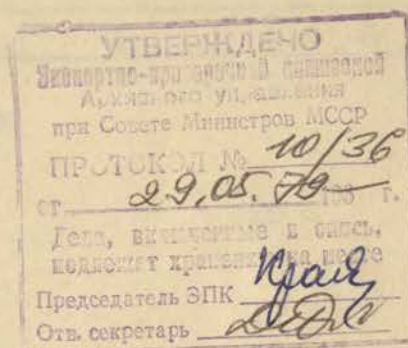 УТВЕРЖДЕНО
Экспертно-проверочной комиссией
Архивного управления
при Совете Министров МССР
ПРОТОКОЛ № 10/36
от 29.05.79 г.
Дела, включенные в опись,
подлежат хранению на месте
Председатель ЭПК
Отв. секретарь